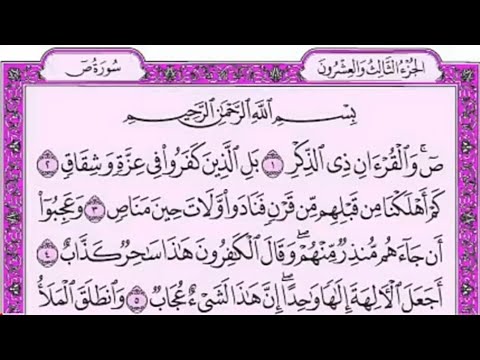 الجزء الثالث والعشرون
سورة ص
بِسْمِ اللَّهِ الرَّحْمَٰنِ الرَّحِيمِ
صٓ ۚ وَالْقُرْءَانِ ذِى الذِّكْرِ ١ بَلِ الَّذِينَ كَفَرُوا۟ فِى عِزَّةٍ وَشِقَاقٍ ٢
كَمْ أَهْلَكْنَا مِن قَبْلِهِم مِّن قَرْنٍ فَنَادَوا۟ وَّلَاتَ حِينَ مَنَاصٍ ٣ وَعَجِبُوٓا۟
أَن جَآءَهُم مُّنذِرٌ مِّنْهُمْ ۖ وَقَالَ الْكَٰفِرُونَ هَٰذَا سَٰحِرٌ كَذَّابٌ ٤
أَجَعَلَ الْءَالِهَةَ إِلَٰهًا وَٰحِدًا ۖ إِنَّ هَٰذَا لَشَىْءٌ عُجَابٌ ٥ وَانطَلَقَ الْمَلَأُ